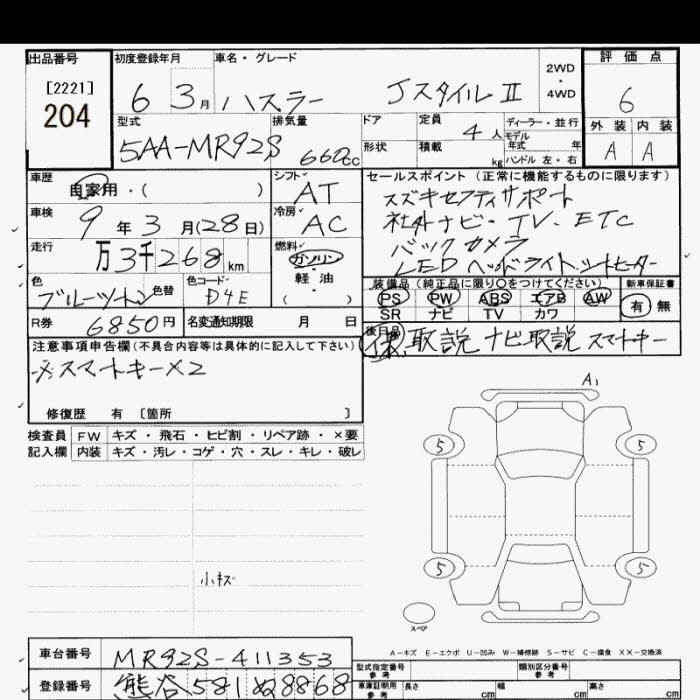 出品番号 初度登録年月 車名・グレード 2WD・4WD 評価点
[2221]
204
6 3月 ハスラー JスタイルⅡ 6
型式 排気量 ドア 定員 4人 ディーラー・並行 外装 内装
モデル年式 年
5AA-MR92S 660cc 形状 積載 kg ハンドル 左・右 A A
車歴 自家用・( ) シフト AT セールスポイント(正常に機能するものに限ります)
スズキセフティサポート
車検 9年3月(28日) 冷房 AC 社外ナビ・TV、ETC
バックカメラ
走行 万3千268km 燃料 ガソリン 軽油 ( ) LEDヘッドライト、シートヒーター
色 ブルーツートン 色替 色コード D4E 装備品(純正品に限り○をつけてください) 新車保証書
PS PW ABS エアB AW 有 無
SR ナビ TV カワ
R券 6850円 名変通知期限 月 日
後日品 保 取説 ナビ取説 スマートキー
注意事項申告欄(不具合内容等は具体的に記入して下さい)
スマートキー×2
修復歴 有 〔箇所 〕
検査員記入欄 FW キズ・飛石・ヒビ割・リペア跡・×要
内装 キズ・汚レ・コゲ・穴・スレ・キレ・破レ
A1
5 5
5 5
小キズ
スペア
A-キズ E-エクボ U-凹み W-補修跡 S-サビ C-腐食 XX-交換済
車台番号 MR92S-411353
型式指定番号 参考 類別区分番号 参考
登録番号 熊谷581ぬ8868
車庫証明用 参考 長さ cm 幅 cm 高さ cm